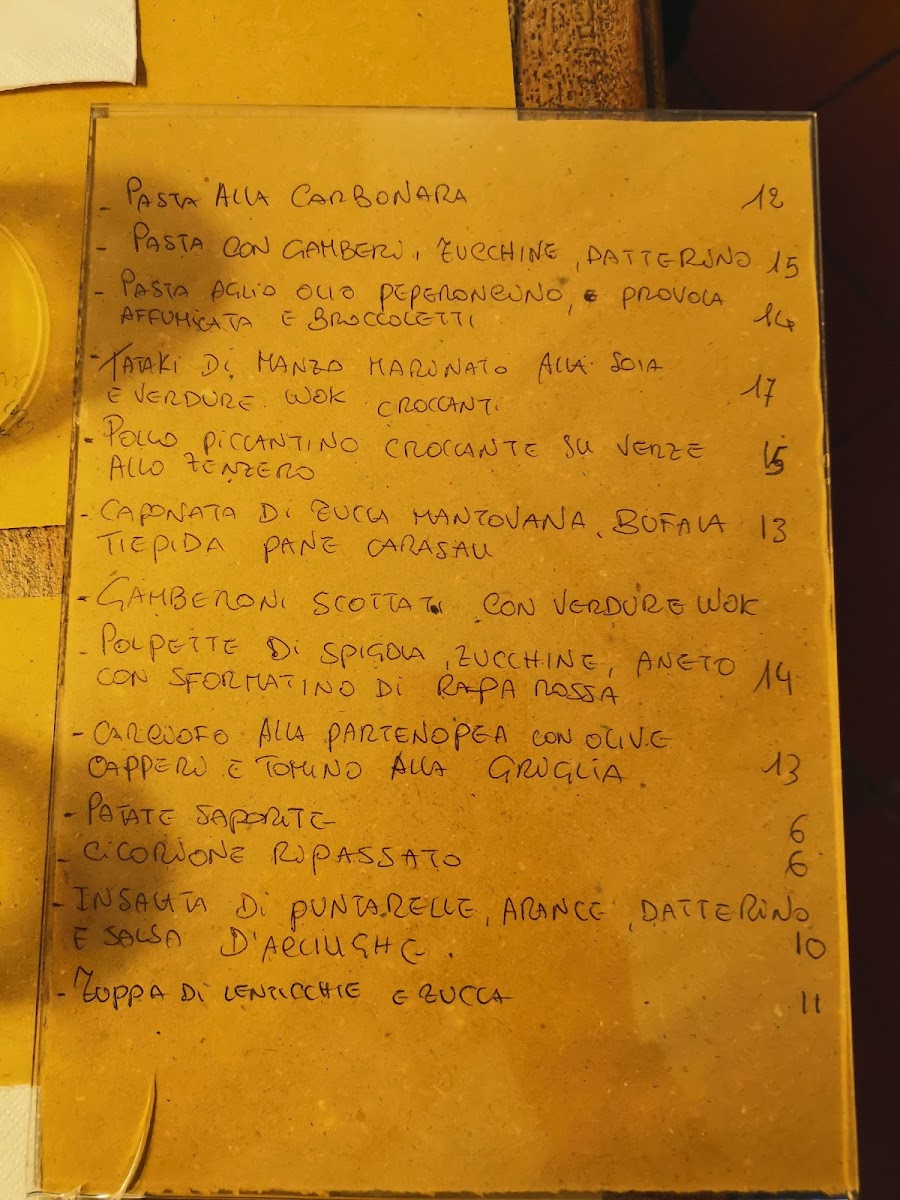 - PASTA ALLA CARBONARA 12
- PASTA CON GAMBERI, ZUCCHINE, DATTERINO 15
- PASTA AGLIO OLIO PEPERONCINO, E PROVOLA
AFFUMICATA E BROCCOLETTI 14
- TATAKI DI MANZO MARINATO ALLA SOIA
E VERDURE WOK CROCCANTI 17
- POLLO PICCANTINO CROCCANTE SU VERZE
ALLO ZENZERO 15
- CAPONATA DI ZUCCA MANTOVANA, BUFALA 13
TIEPIDA PANE CARASAU
- GAMBERONI SCOTTATI CON VERDURE WOK
- POLPETTE DI SPIGOLA, ZUCCHINE, ANETO
CON SFORMATINO DI RAPA ROSSA 14
- CARCIOFO ALLA PARTENOPEA CON OLIVE
CAPPERI E TOMINO ALLA GRIGLIA 13
- PATATE SAPORITE 6
- CICORIONE RIPASSATO 6
- INSALATA DI PUNTARELLE, ARANCE, DATTERINO
E SALSA D'ACCIUGHE. 10
- ZUPPA DI LENTICCHIE E ZUCCA 11